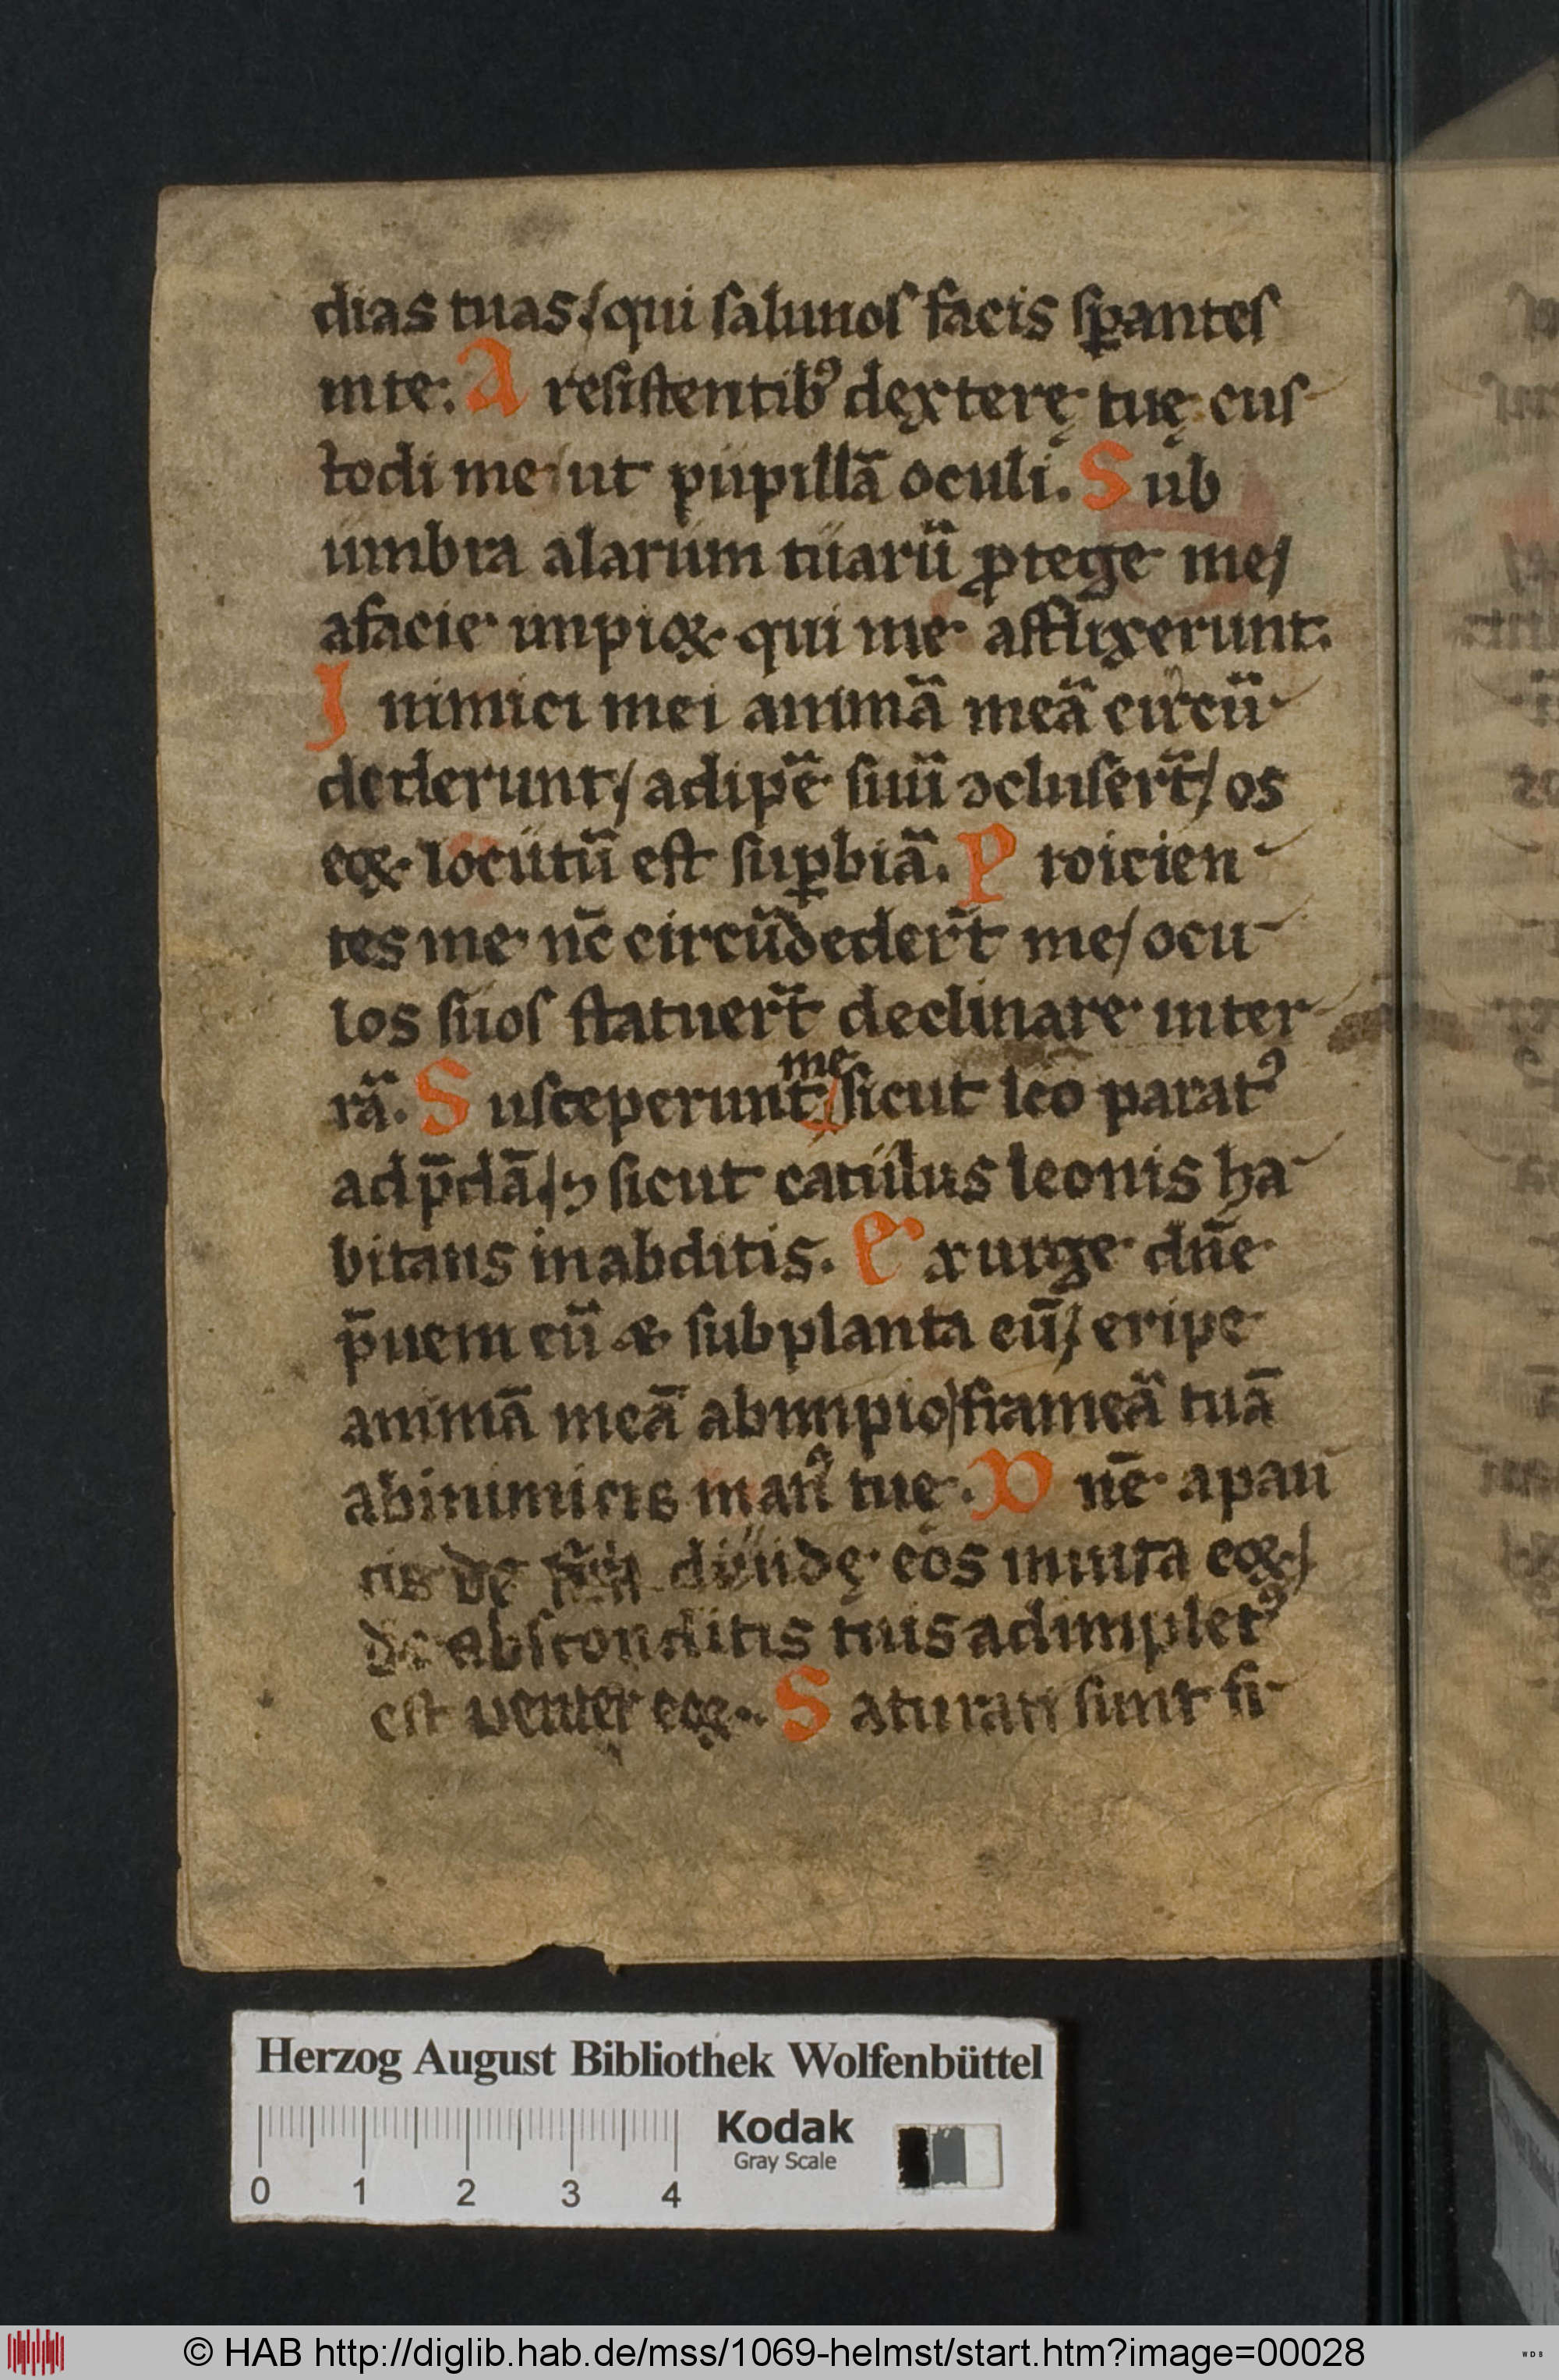 dias tuas / qui saluuos facis sꝑantes
inte: A resistentibꝰ dexterę tuę cus
todi me / ut pupillā oculi. Sub
umbra alarum tuarū ꝓtege me /
afacie impioꝝ qui me afflixerunt.
Inimici mei animā meā circū
dederunt / adipē suū ꝯcluserт̄ / os
eoꝝ locutū est suꝑbiā. Proicien
tes me nc̄ circūdedert̄ me / ocu
los suos statuert̄ declinare inter
rā. Susceperunt me / sicut leo parat᷒
adp̄dā / ⁊ sicut catulus leonis ha
bitans inabditis. Exurge dn̄e
p̄ueni eū & subplanta eū / eripe
animā meā abimpio / frameā tuā
abinimicis manꝰ tuę. Dnē apau
cis de diuidę eos inuita eoꝝ /
de absconditis tuis adimplet᷒
est uenter eoꝝ. Saturati sunt fi
Herzog August Bibliothek Wolfenbüttel
Kodak
Gray Scale
0 1 2 3 4
© HAB http://diglib.hab.de/mss/1069-helmst/start.htm?image=00028
WDB